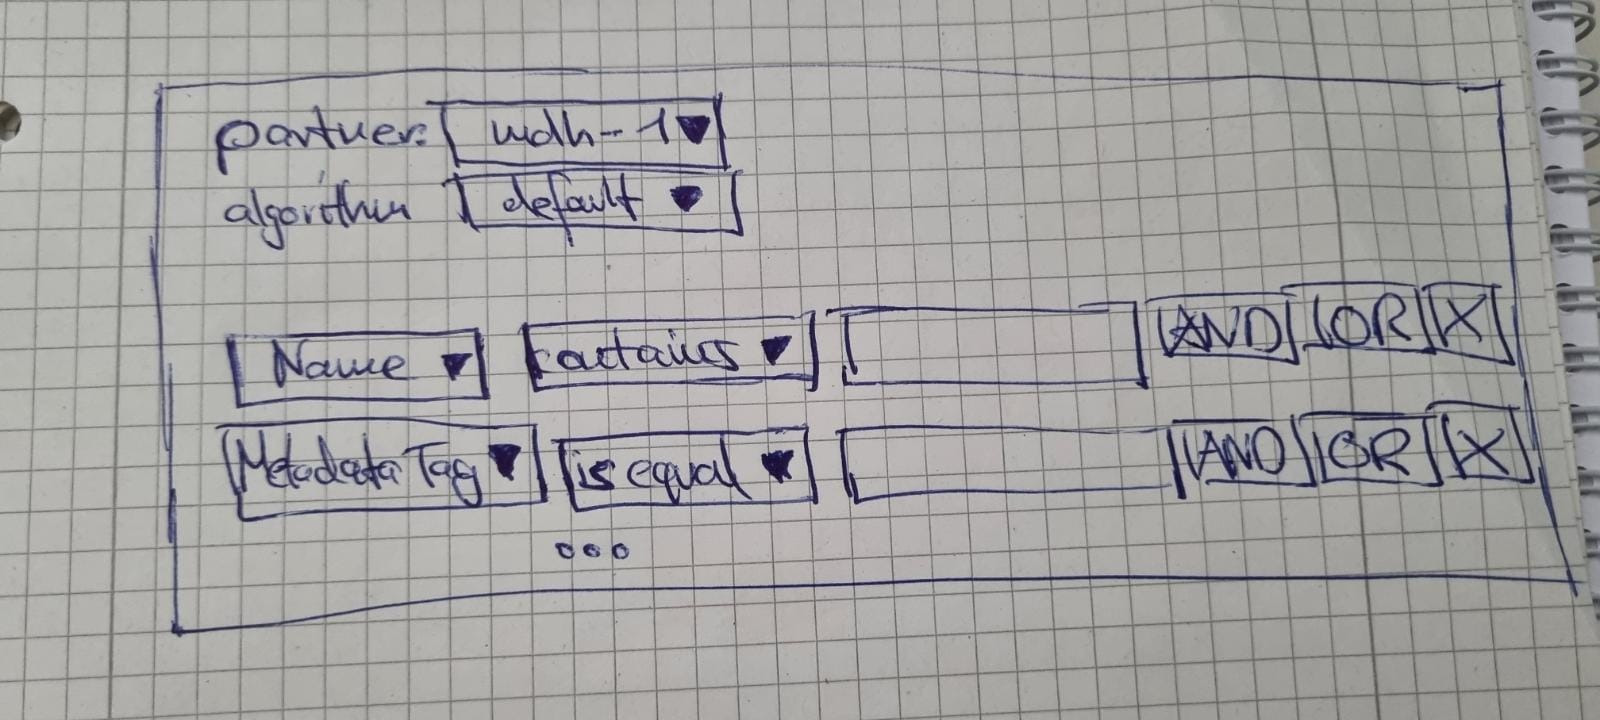 partner: mdh-1
algorithm default
Name contains AND OR X
Metadata Tag is equal AND OR X
ooo